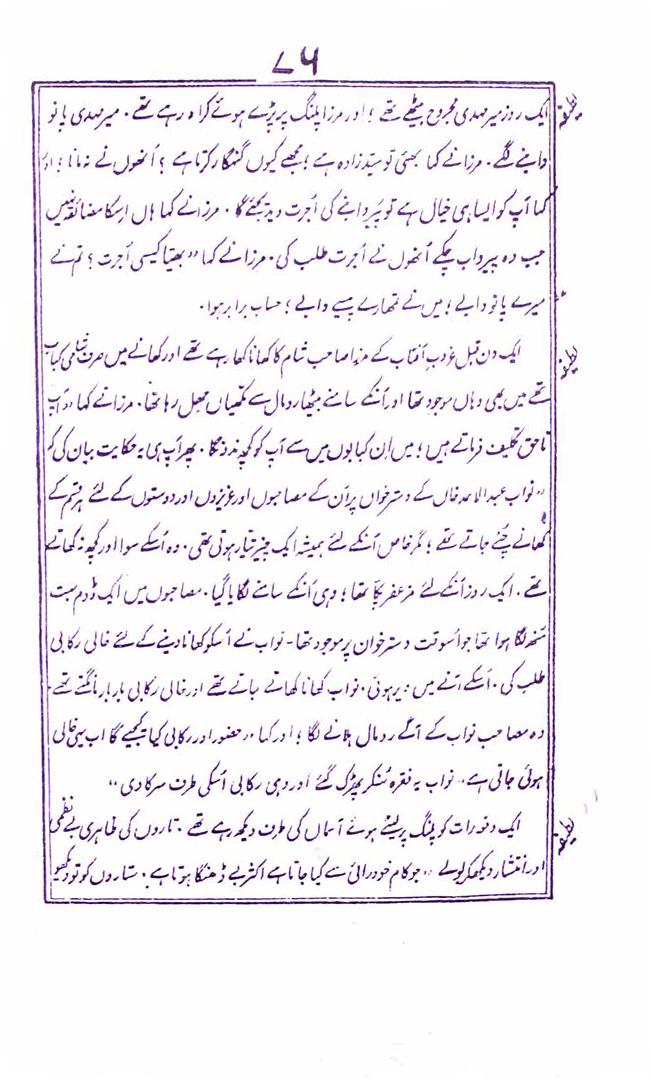 ۷۵
لطیفہ
ایک روز میر مہدی مجروح بیٹھے تھے؛ اور مرزا پلنگ پر پڑے ہوئے کراہ رہے تھے۔ میر مہدی پانو
دابنے لگے۔ مرزا نے کہا بھئی تو سیّد زادہ ہے؛ مجھے کیوں گنہگار کرتا ہے؟ اُنھوں نے نہ مانا؛ اور
کہا آپ کو ایسا ہی خیال ہے تو پیر دابنے کی اُجرت دیدیجئے گا۔ مرزا نے کہا ہاں اسکا مضائقہ نہیں
جب وہ پیر داب چکے اُنھوں نے اُجرت طلب کی۔ مرزا نے کہا "بھیّا کیسی اُجرت؟ تم نے
میرے پانو دابے؛ میں نے تمھارے پیسے دابے؛ حساب برابر ہوا۔
لطیفہ
ایک دن قبل غروبِ آفتاب کے مرزا صاحب شام کا کھانا کھا رہے تھے اور کھانے میں صرف شامی کباب
تھے میں بھی وہاں موجود تھا اور اُنکے سامنے بیٹھا رومال سے مکھیاں جھل رہا تھا۔ مرزا نے کہا "آپ
ناحق تکلیف فرماتے ہیں؛ میں ان کبابوں میں سے آپ کو کچھ نہ دونگا۔ پھر آپ ہی یہ حکایت بیان کی کہ
"نواب عبدالاحد خاں کے دسترخواں پر اُن کے مصاحبوں اور عزیزوں اور دوستوں کے لئے ہر قسم کے
کھانے چُنے جاتے تھے؛ مگر خاص اُنکے لئے ہمیشہ ایک چیز تیار ہوتی تھی۔ وہ اُسکے سوا اور کچھ نہ کھاتے
تھے۔ ایک روز اُنکے لئے مزعفر پکا تھا؛ وہی اُنکے سامنے لگایا گیا۔ مصاحبوں میں ایک ڈوم بہت
منھ لگا ہوا تھا جو اُسوقت دسترخوان پر موجود تھا۔ نواب نے اُسکو کھانا دینے کے لئے خالی رکابی
طلب کی۔ اُسکے آنے میں دیر ہوئی۔ نواب کھانا کھاتے جاتے تھے اور خالی رکابی بار بار مانگتے تھے۔
وہ مصاحب نواب کے آگے رومال ہلانے لگا؛ اور کہا "حضور اور رکابی کیا کیجیے گا اب یہی خالی
ہوئی جاتی ہے" نواب یہ فقرہ سُنکر پھڑک گئے اور وہی رکابی اُسکی طرف سرکا دی"
لطیفہ
ایک دفعہ رات کو پلنگ پر لیٹے ہوئے آسماں کی طرف دیکھ رہے تھے۔ تاروں کی ظاہری بے نظمی
اور انتشار دیکھکر بولے "جو کام خود رائی سے کیا جاتا ہے اکثر بے ڈھنگا ہوتا ہے۔ ستاروں کو تو دیکھو